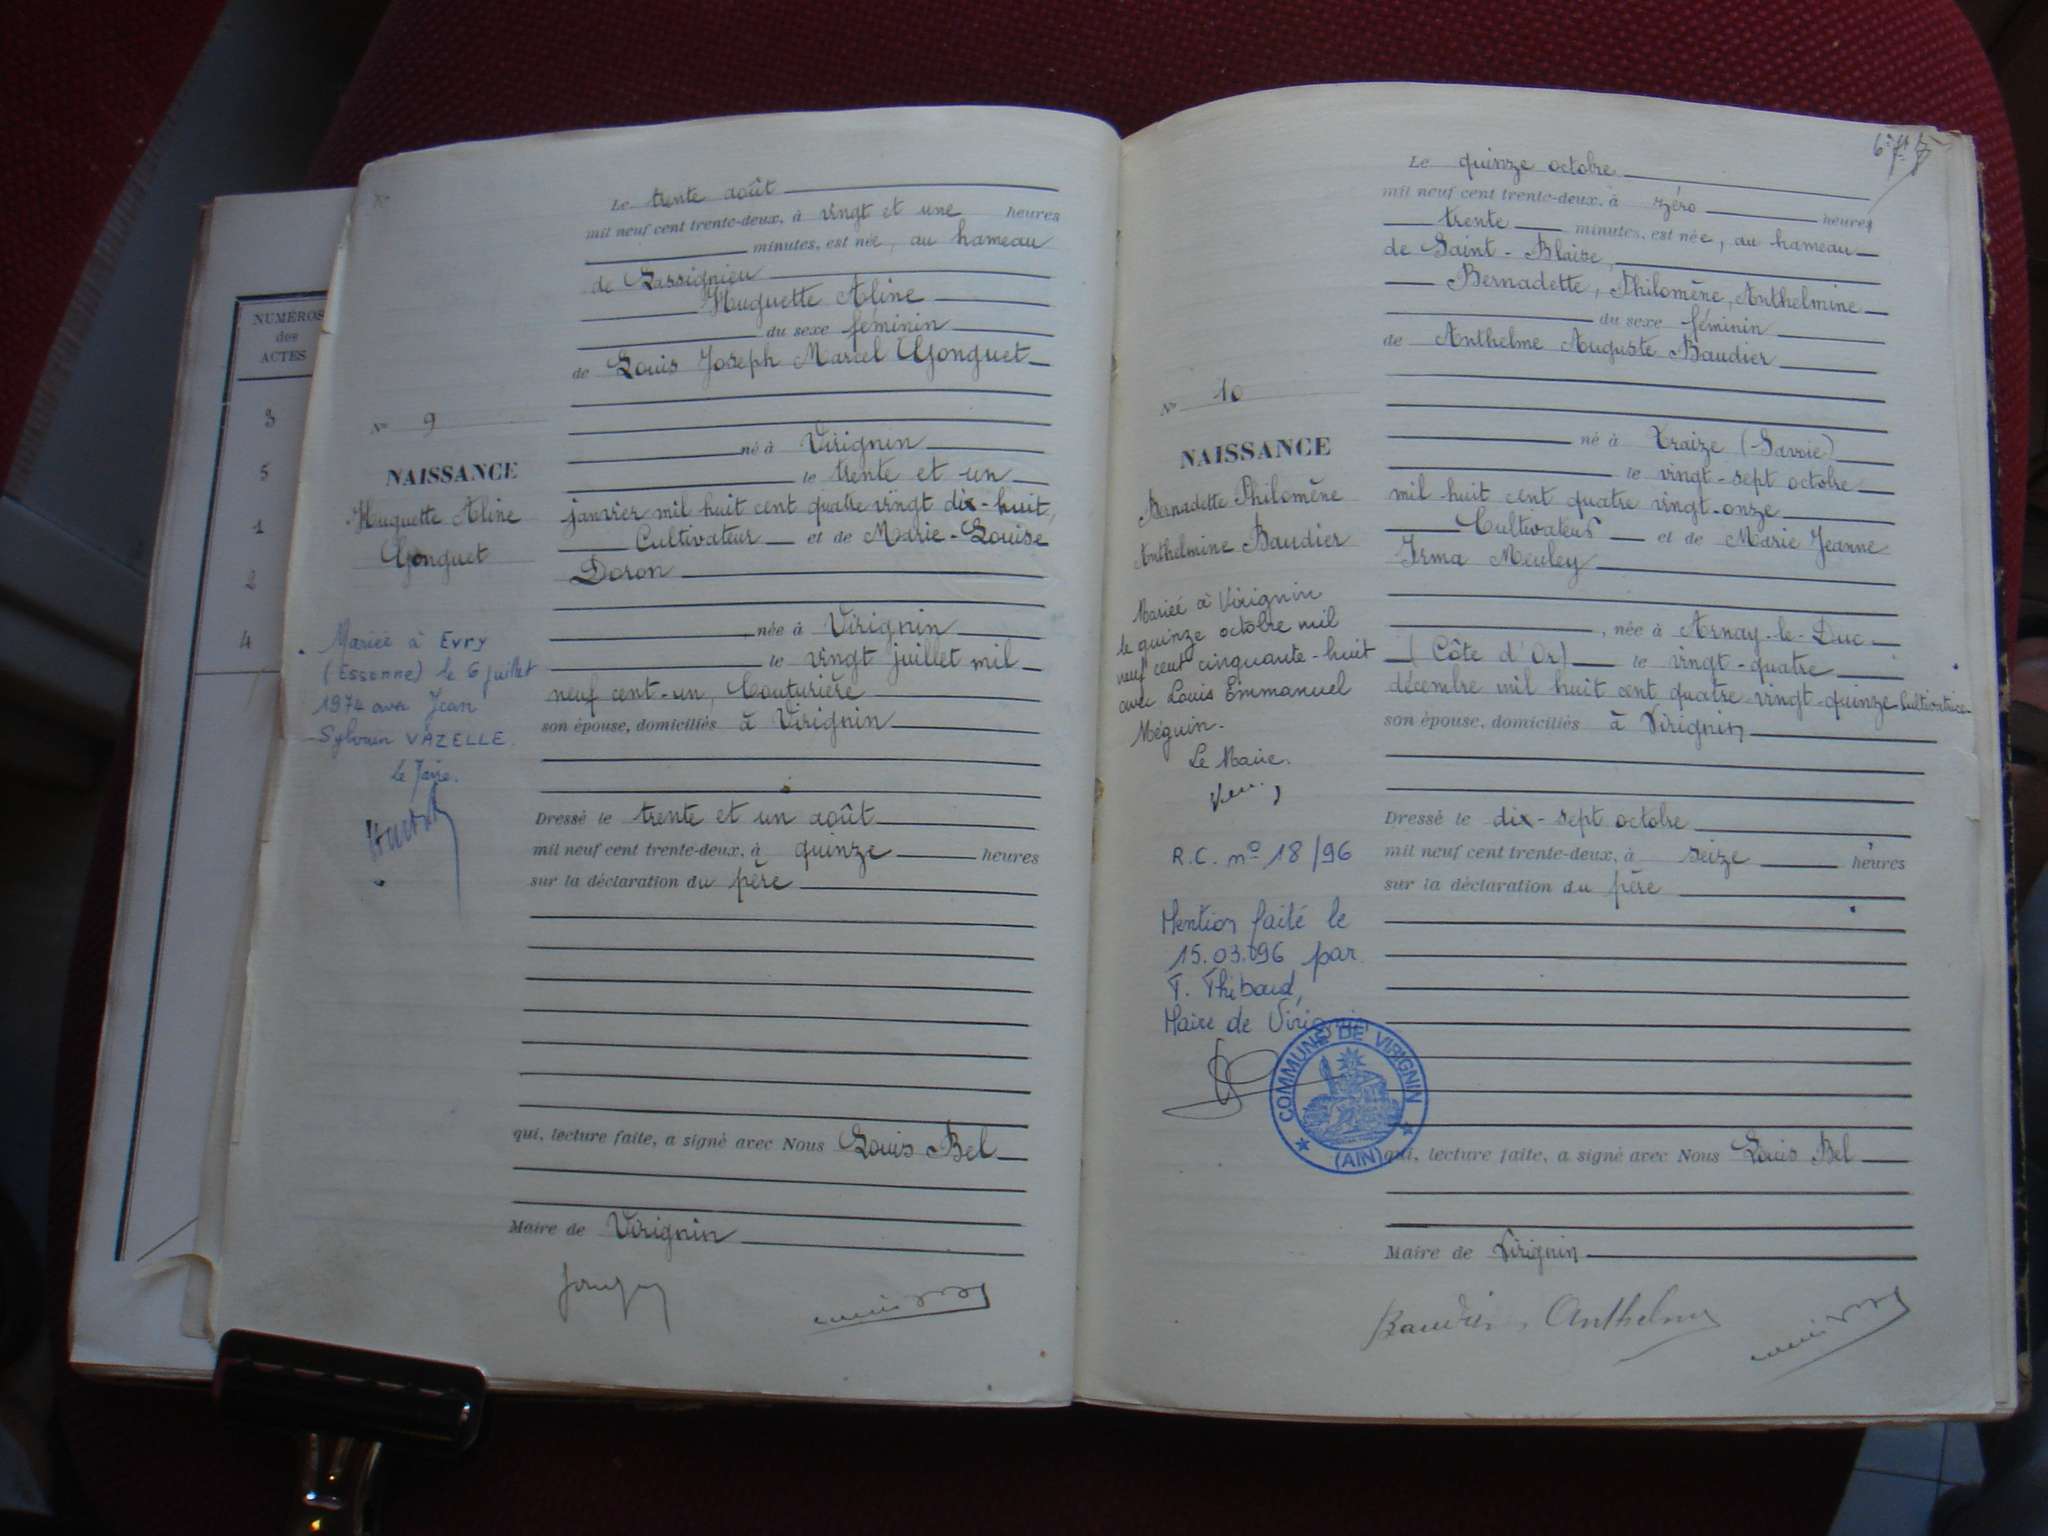 NUMÉROS
des
ACTES
3
5
1
2
4
Le trente août
mil neuf cent trente-deux, à vingt et une heures
minutes, est née, au hameau
de Lassignieu
Huguette Aline
du sexe féminin
de Louis Joseph Marcel Gonguet
né à Virignin
le trente et un
janvier mil huit cent quatre vingt dix-huit,
Cultivateur et de Marie-Louise
Doron
née à Virignin
le vingt juillet mil
neuf cent-un, Couturière
son épouse, domiciliés à Virignin
Dressé le trente et un août
mil neuf cent trente-deux, à quinze heures
sur la déclaration du père
qui, lecture faite, a signé avec Nous Louis Bel
Maire de Virignin
N° 9
NAISSANCE
Huguette Aline
Gonguet
Mariée à Evry
(Essonne) le 6 juillet
1974 avec Jean
Sylvain VAZELLE.
Le Maire.
Le quinze octobre
mil neuf cent trente-deux, à zéro heures
trente minutes, est née, au hameau
de Saint-Blaise,
Bernadette, Philomène, Anthelmine
du sexe féminin
de Anthelme Auguste Baudier
né à Traize (Savoie)
le vingt-sept octobre
mil huit cent quatre vingt-onze
Cultivateur et de Marie Jeanne
Irma Meuley
, née à Arnay-le-Duc
(Côte d'Or) le vingt-quatre
décembre mil huit cent quatre vingt-quinze Cultivatrice
son épouse, domiciliés à Virignin
Dressé le dix-sept octobre
mil neuf cent trente-deux, à seize heures
sur la déclaration du père
qui, lecture faite, a signé avec Nous Louis Bel
Maire de Virignin
Baudier Anthelme
N° 10
NAISSANCE
Bernadette Philomène
Anthelmine Baudier
Mariée à Virignin
le quinze octobre mil
neuf cent cinquante-huit
avec Louis Emmanuel
Méguin.
Le Maire.
R.C. n° 18/96
Mention faite le
15.03.96 par
T. Thibaud,
Maire de Virignin
COMMUNE DE VIRIGNIN
(AIN)